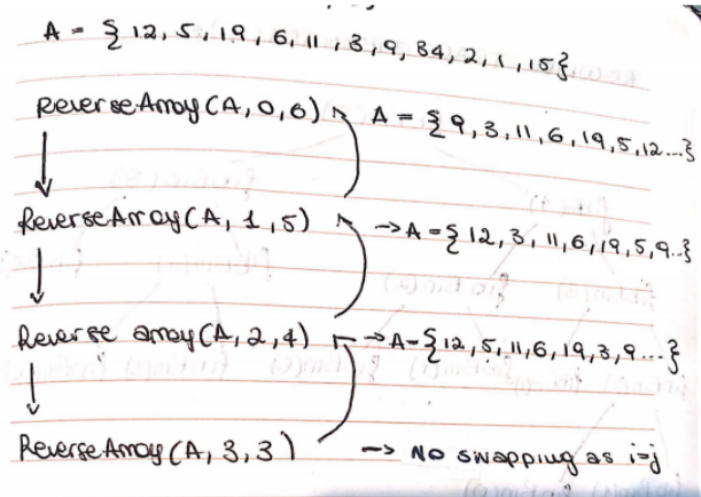 A = { 12, 5, 19, 6, 11, 3, 9, 34, 2, 1, 15}
ReverseArray (A, 0, 6) A = { 9, 3, 11, 6, 19, 5, 12...}
ReverseArray (A, 1, 5) → A = { 12, 3, 11, 6, 19, 5, 9..}
Reverse array (A, 2, 4) → A = { 12, 5, 11, 6, 19, 3, 9...}
ReverseArray (A, 3, 3) → NO swapping as i=j